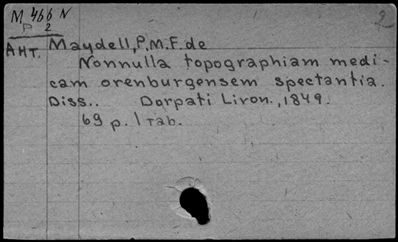 M 466 N
P 2
2
Ант. Maydell, P.M.F. de
Nonnulla topographiam medi-
cam orenburgensem spectantia.
Diss.. Dorpati Livon., 1849.
69 p. 1 tab.